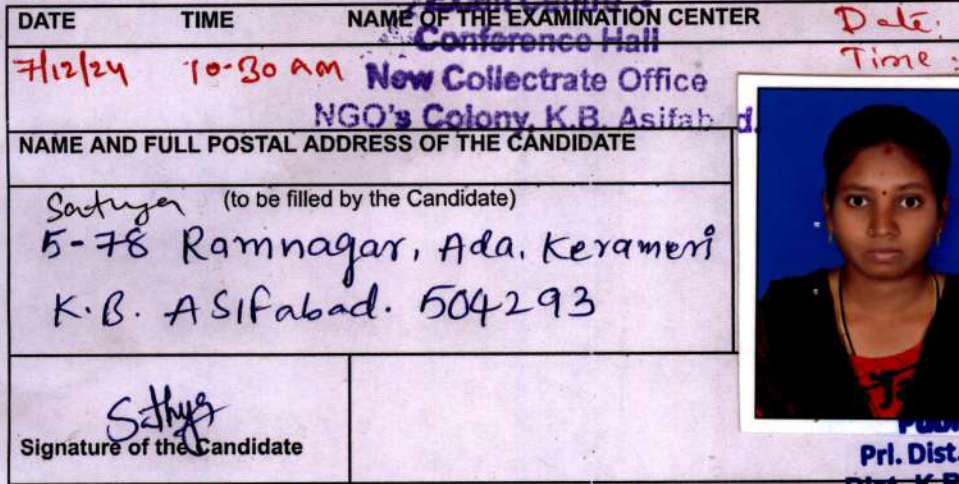 DATE TIME NAME OF THE EXAMINATION CENTER Date:
Conference Hall
7/12/24 10-30 AM New Collectrate Office Time:
NGO's Colony, K.B. Asifab d.
NAME AND FULL POSTAL ADDRESS OF THE CANDIDATE
Sathya (to be filled by the Candidate)
5-78 Ramnagar, Ada, Kerameri
K.B. ASIFabad. 504293
Sathya
Signature of the Candidate
Prl. Dist.